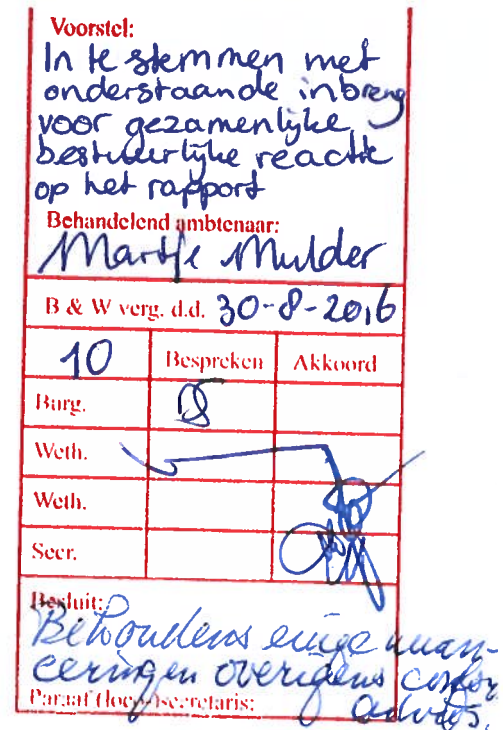 Voorstel:
In te stemmen met
onderstaande inbreng
voor gezamenlijke
bestuurlijke reactie
op het rapport
Behandelend ambtenaar:
Martje Mulder
B & W verg. d.d. 30-8-2016
10 Bespreken Akkoord
Burg.
Weth.
Weth.
Secr.
Besluit:
Behoudens enige nuan-
ceringen overigens confor
advies.
Paraaf (loco-)secretaris: